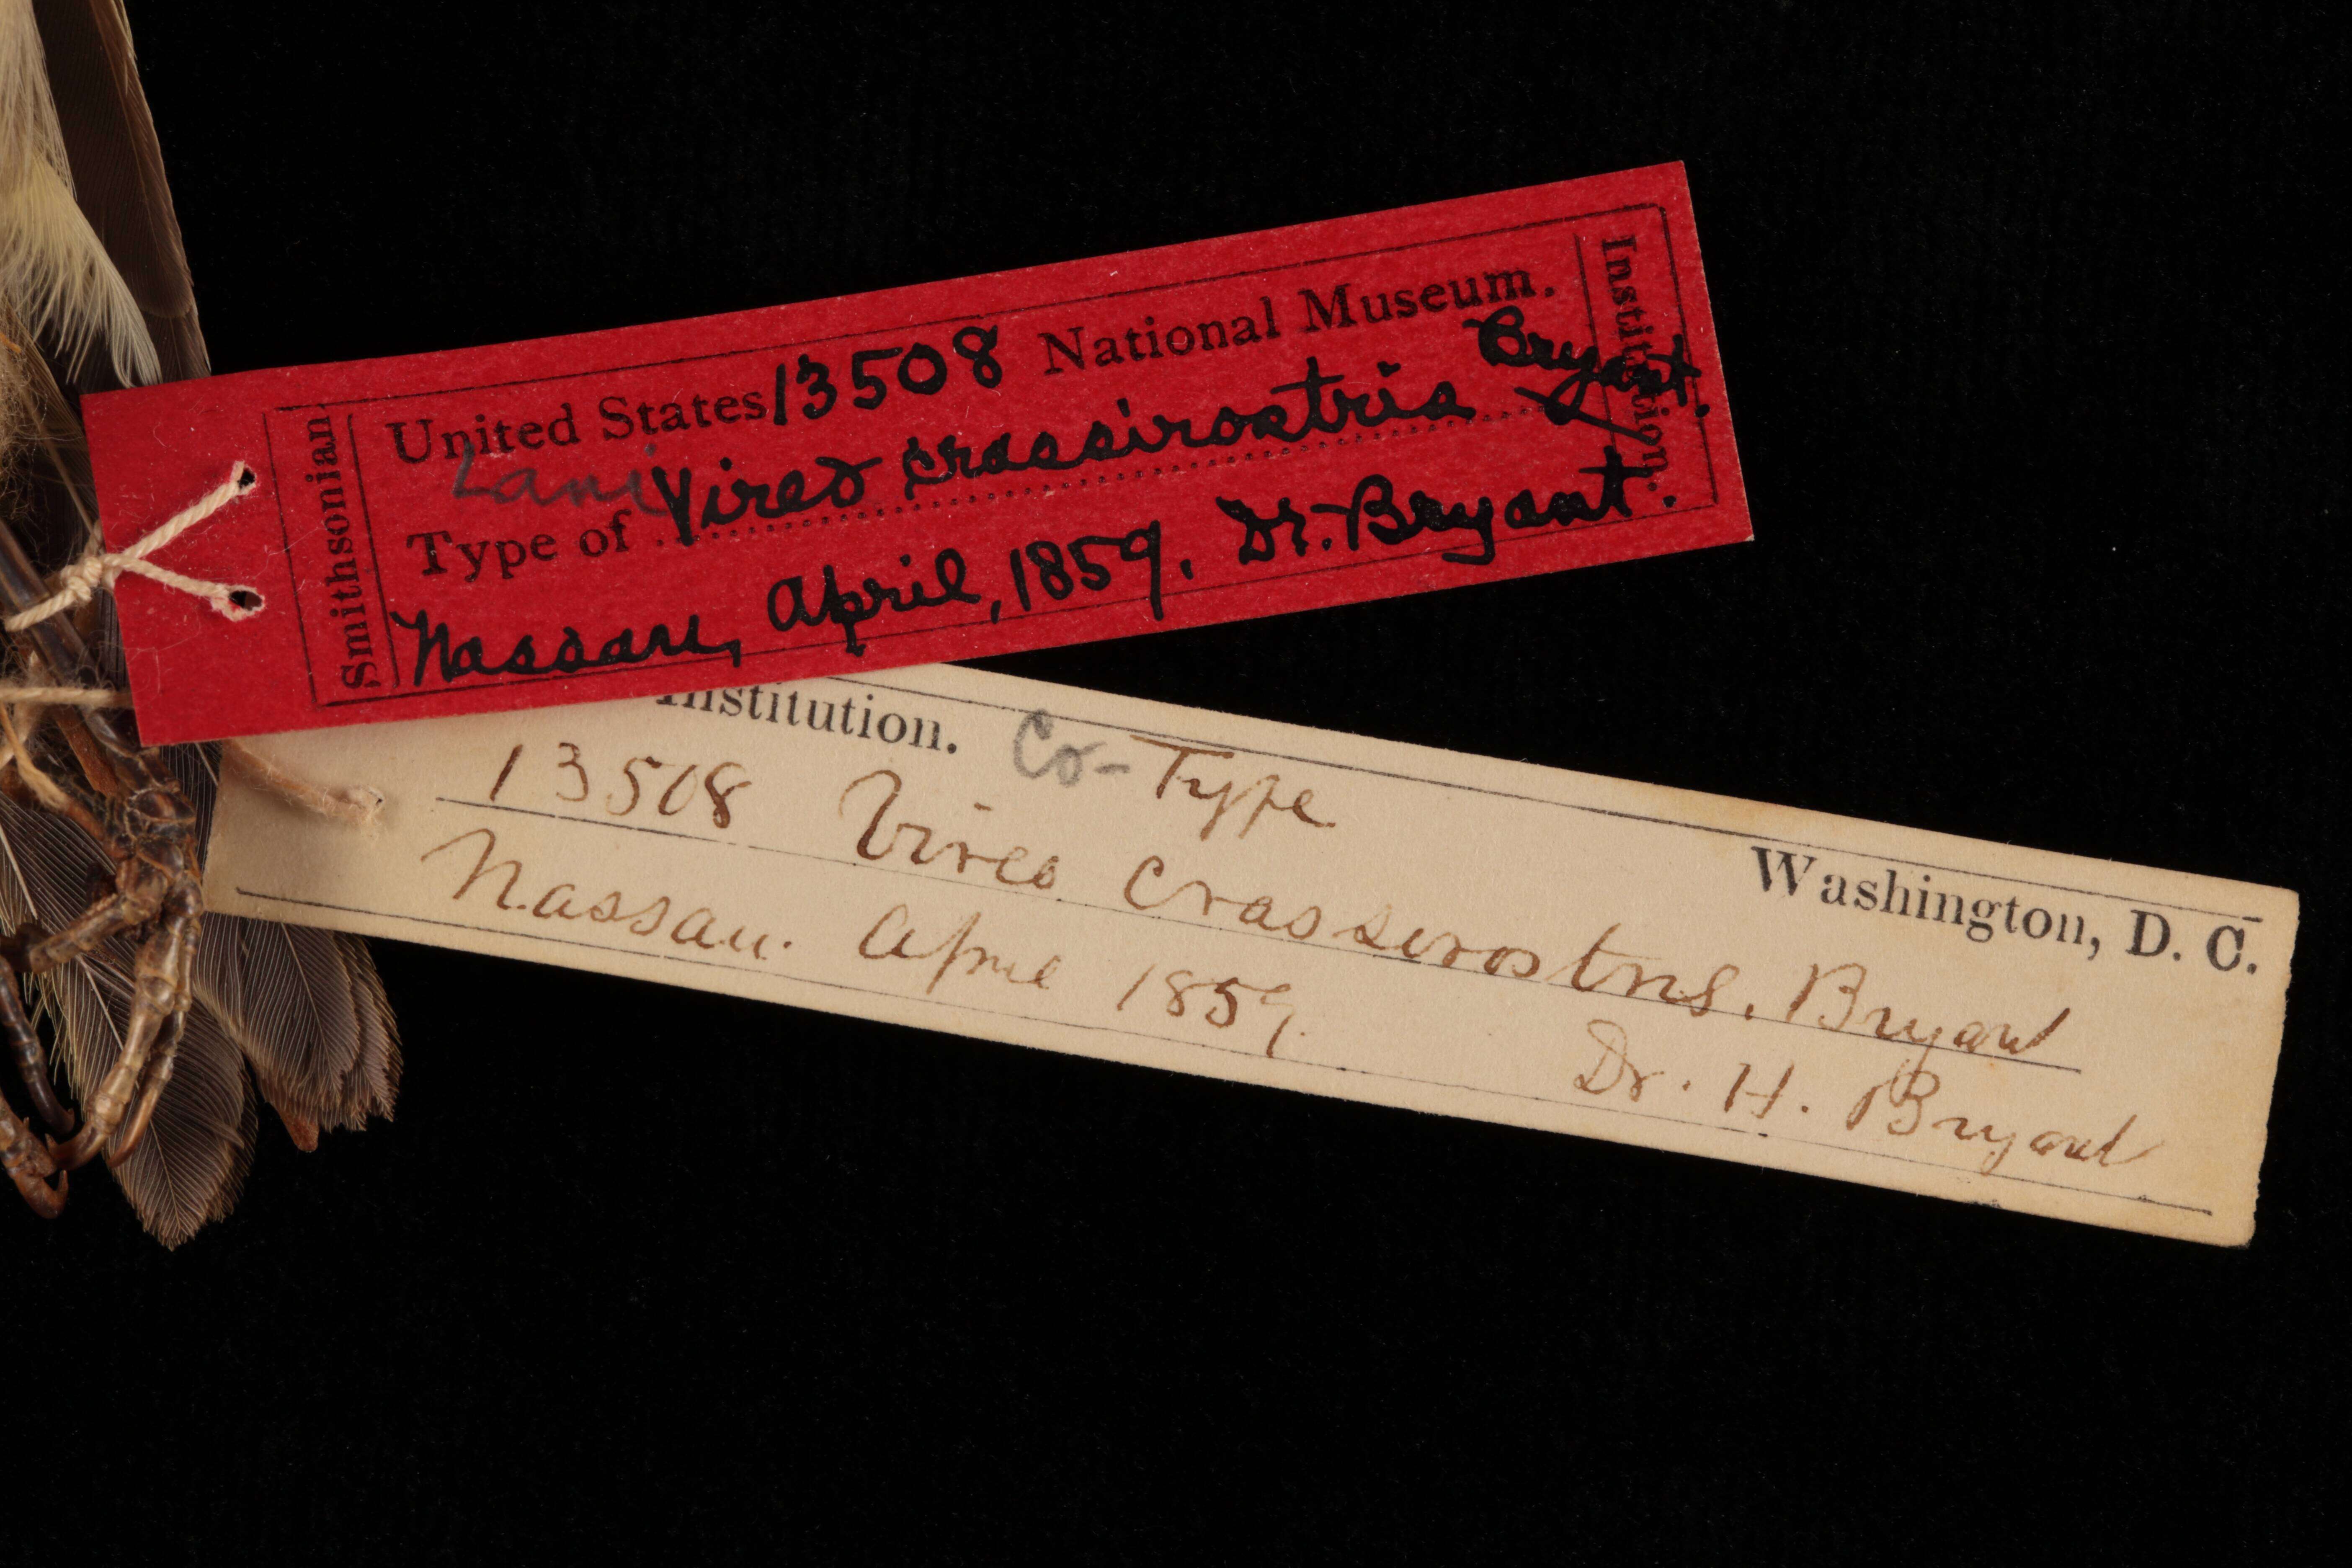 Smithsonian
United States 13508 National Museum.
Lani
Type of Vireo crassirostris Bryant.
Nassau, April, 1859. Dr. Bryant.
Institution.
Institution. Co-Type
Washington, D. C.
13508 Vireo Crassirostris. Bryant
Nassau. April 1859. Dr. H. Bryant